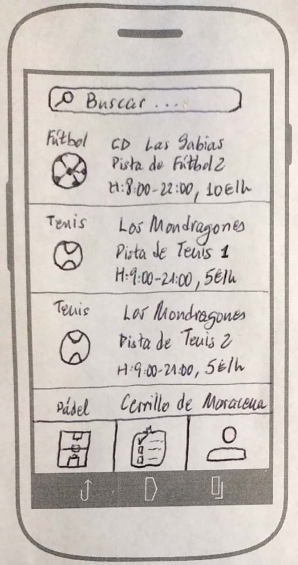 Buscar ...
Fútbol
CD Las Gabias
Pista de Fútbol 2
H:8:00-22:00, 10€/h
Tenis
Los Mondragones
Pista de Tenis 1
H:9:00-21:00, 5€/h
Tenis
Los Mondragones
Pista de Tenis 2
H:9:00-21:00, 5€/h
Pádel
Cerrillo de Maracena